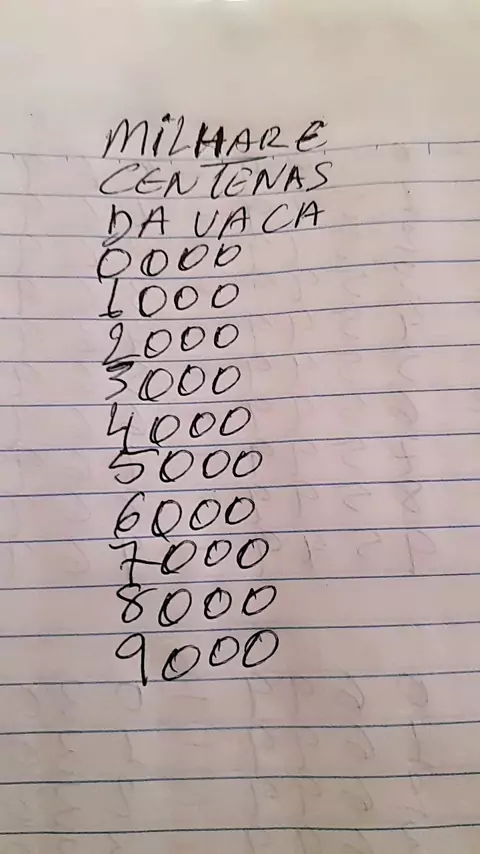 MILHAR E
CENTENAS
DA VACA
0000
1000
2000
3000
4000
5000
6000
7000
8000
9000